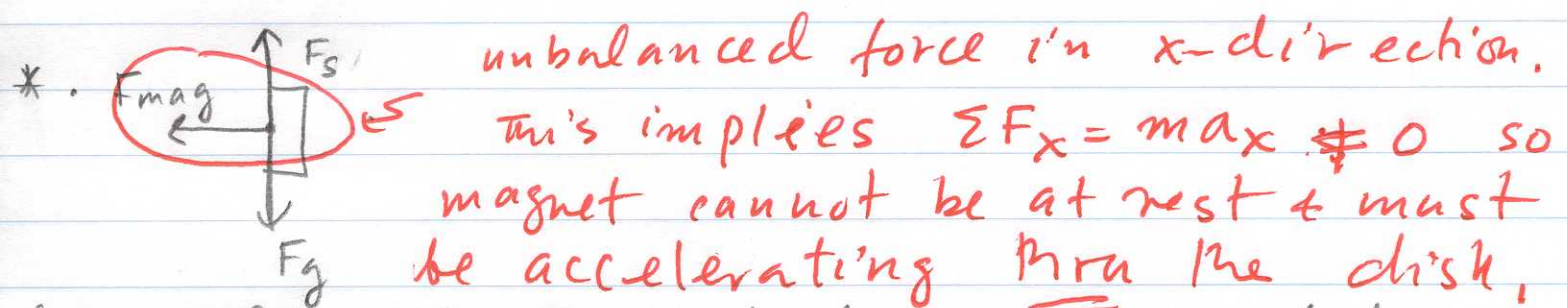 * . Fmag Fs unbalanced force in x-direction.
This implies ΣFx = max ≠ 0 so
magnet cannot be at rest & must
Fg be accelerating thru the disk.